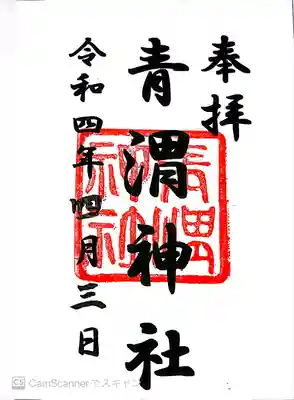 奉拝
青渭神社
令和四年四月三日
青渭神社
CS CamScannerでスキャン